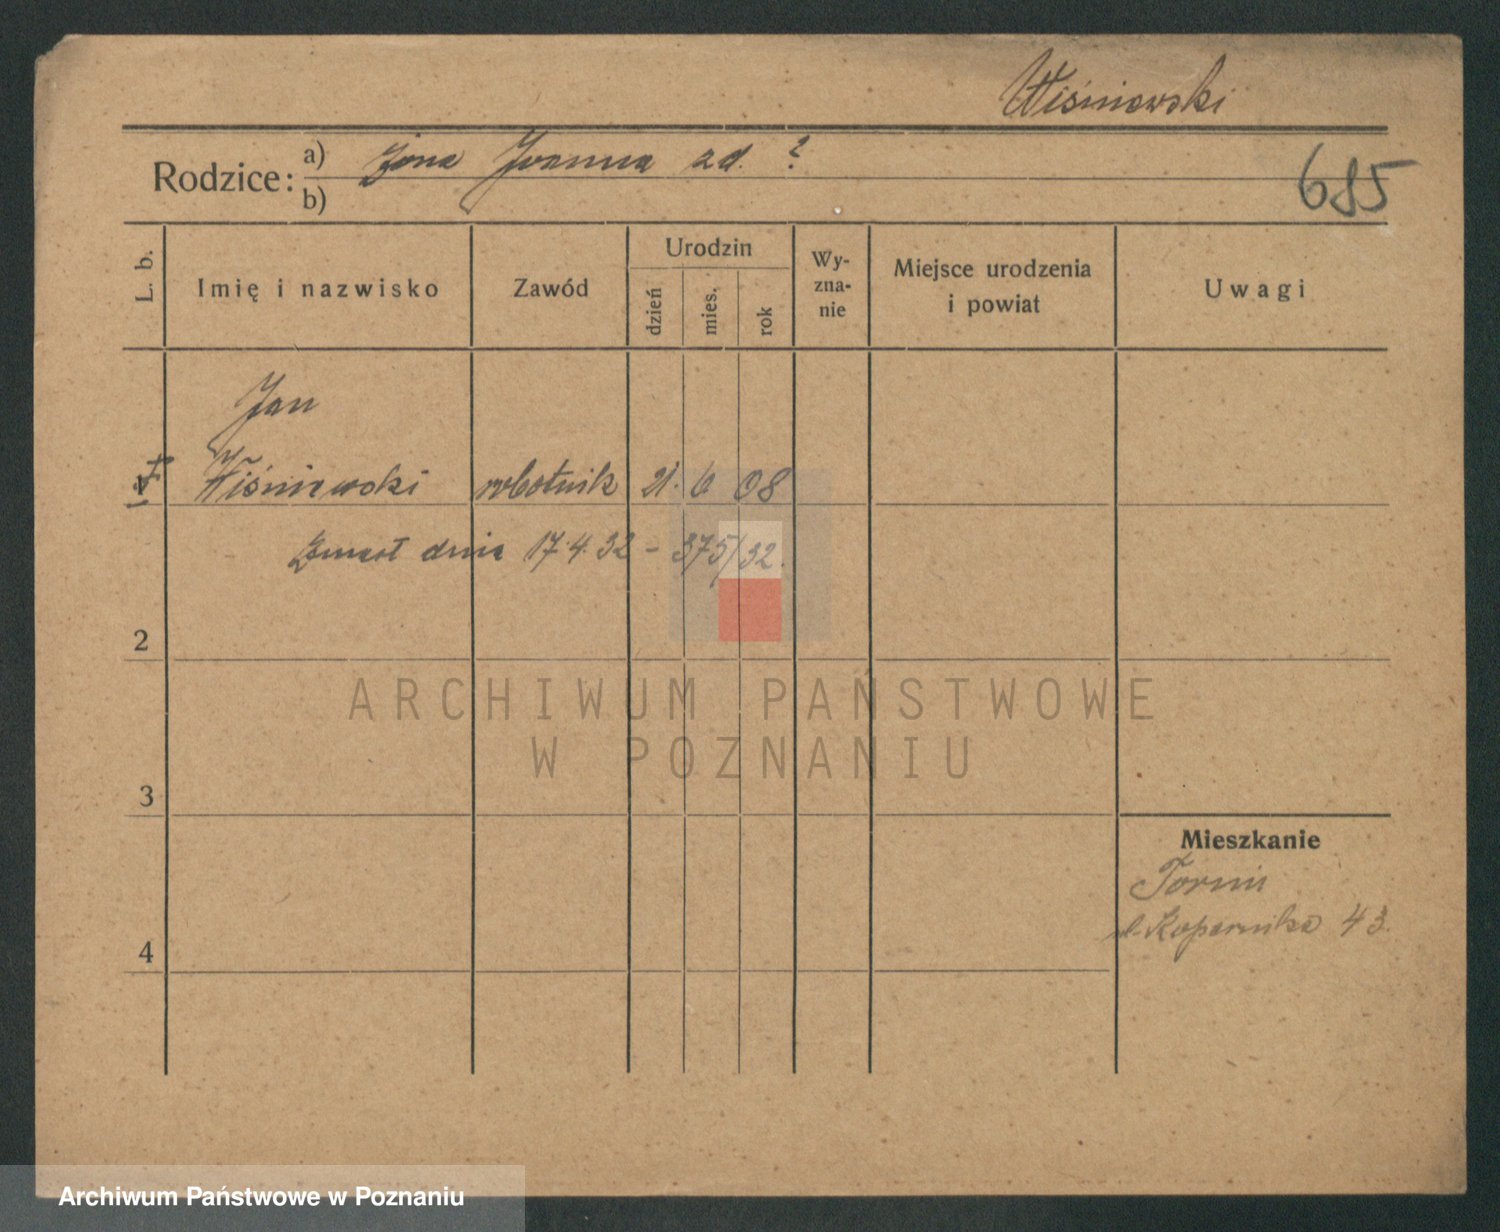 Wiśniewski
Rodzice: a) żona Joanna zd. ?
b)
685
L. b. Imię i nazwisko Zawód Urodzin dzień mies. rok Wy-zna-nie Miejsce urodzenia i powiat Uwagi
Jan
1 Wiśniewski robotnik 21. 6 08
Zmarł dnia 17.4.32 - 375/32.
2
ARCHIWUM PAŃSTWOWE
W POZNANIU
3
Mieszkanie
Toruń
ul. Kopernika 43.
4
Archiwum Państwowe w Poznaniu